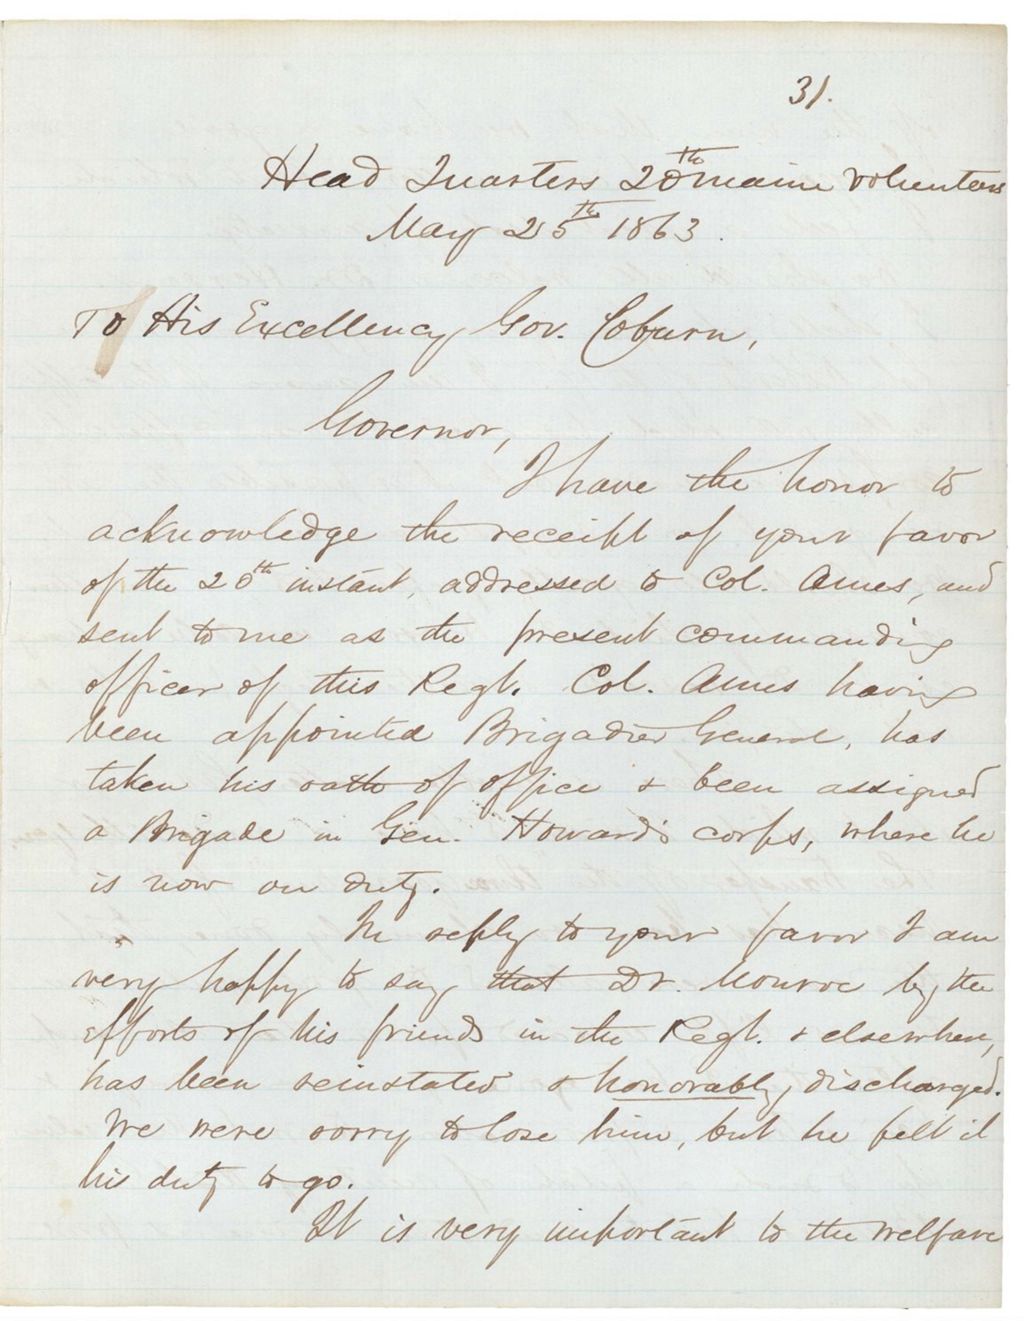 31.
Head Quarters 20th Maine Volunteers
May 25th 1863.
To His Excellency Gov. Coburn,
Governor,
I have the honor to
acknowledge the receipt of your favor
of the 20th instant, addressed to Col. Ames, and
sent to me as the present commanding
officer of this Regt. Col. Ames having
been appointed Brigadier General, has
taken his oath of office & been assigned
a Brigade in Gen. Howard's corps, where he
is now on duty.
In reply to your favor I am
very happy to say that Dr. Monroe by the
efforts of his friends in the Regt. & elsewhere,
has been reinstated & honorably discharged.
We were sorry to lose him, but he felt it
his duty to go.
It is very important to the welfare